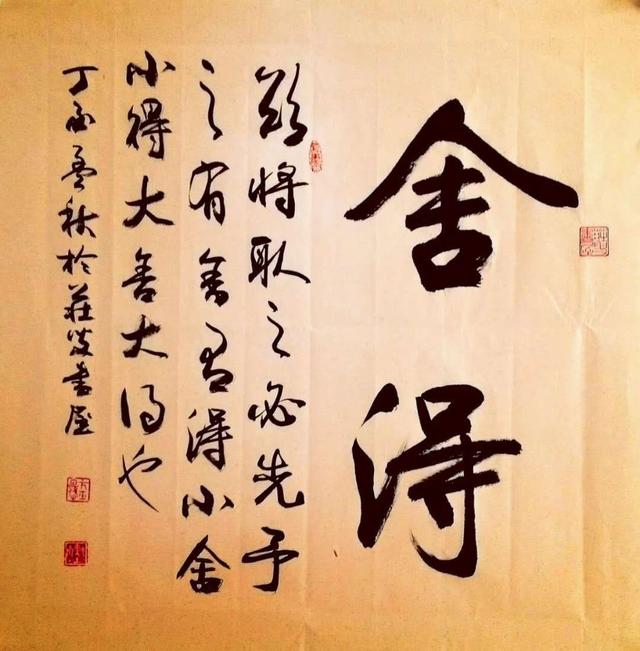 舍得
欲将取之必先予
之有舍有得小舍
小得大舍大得也
丁酉孟秋于庄
书屋